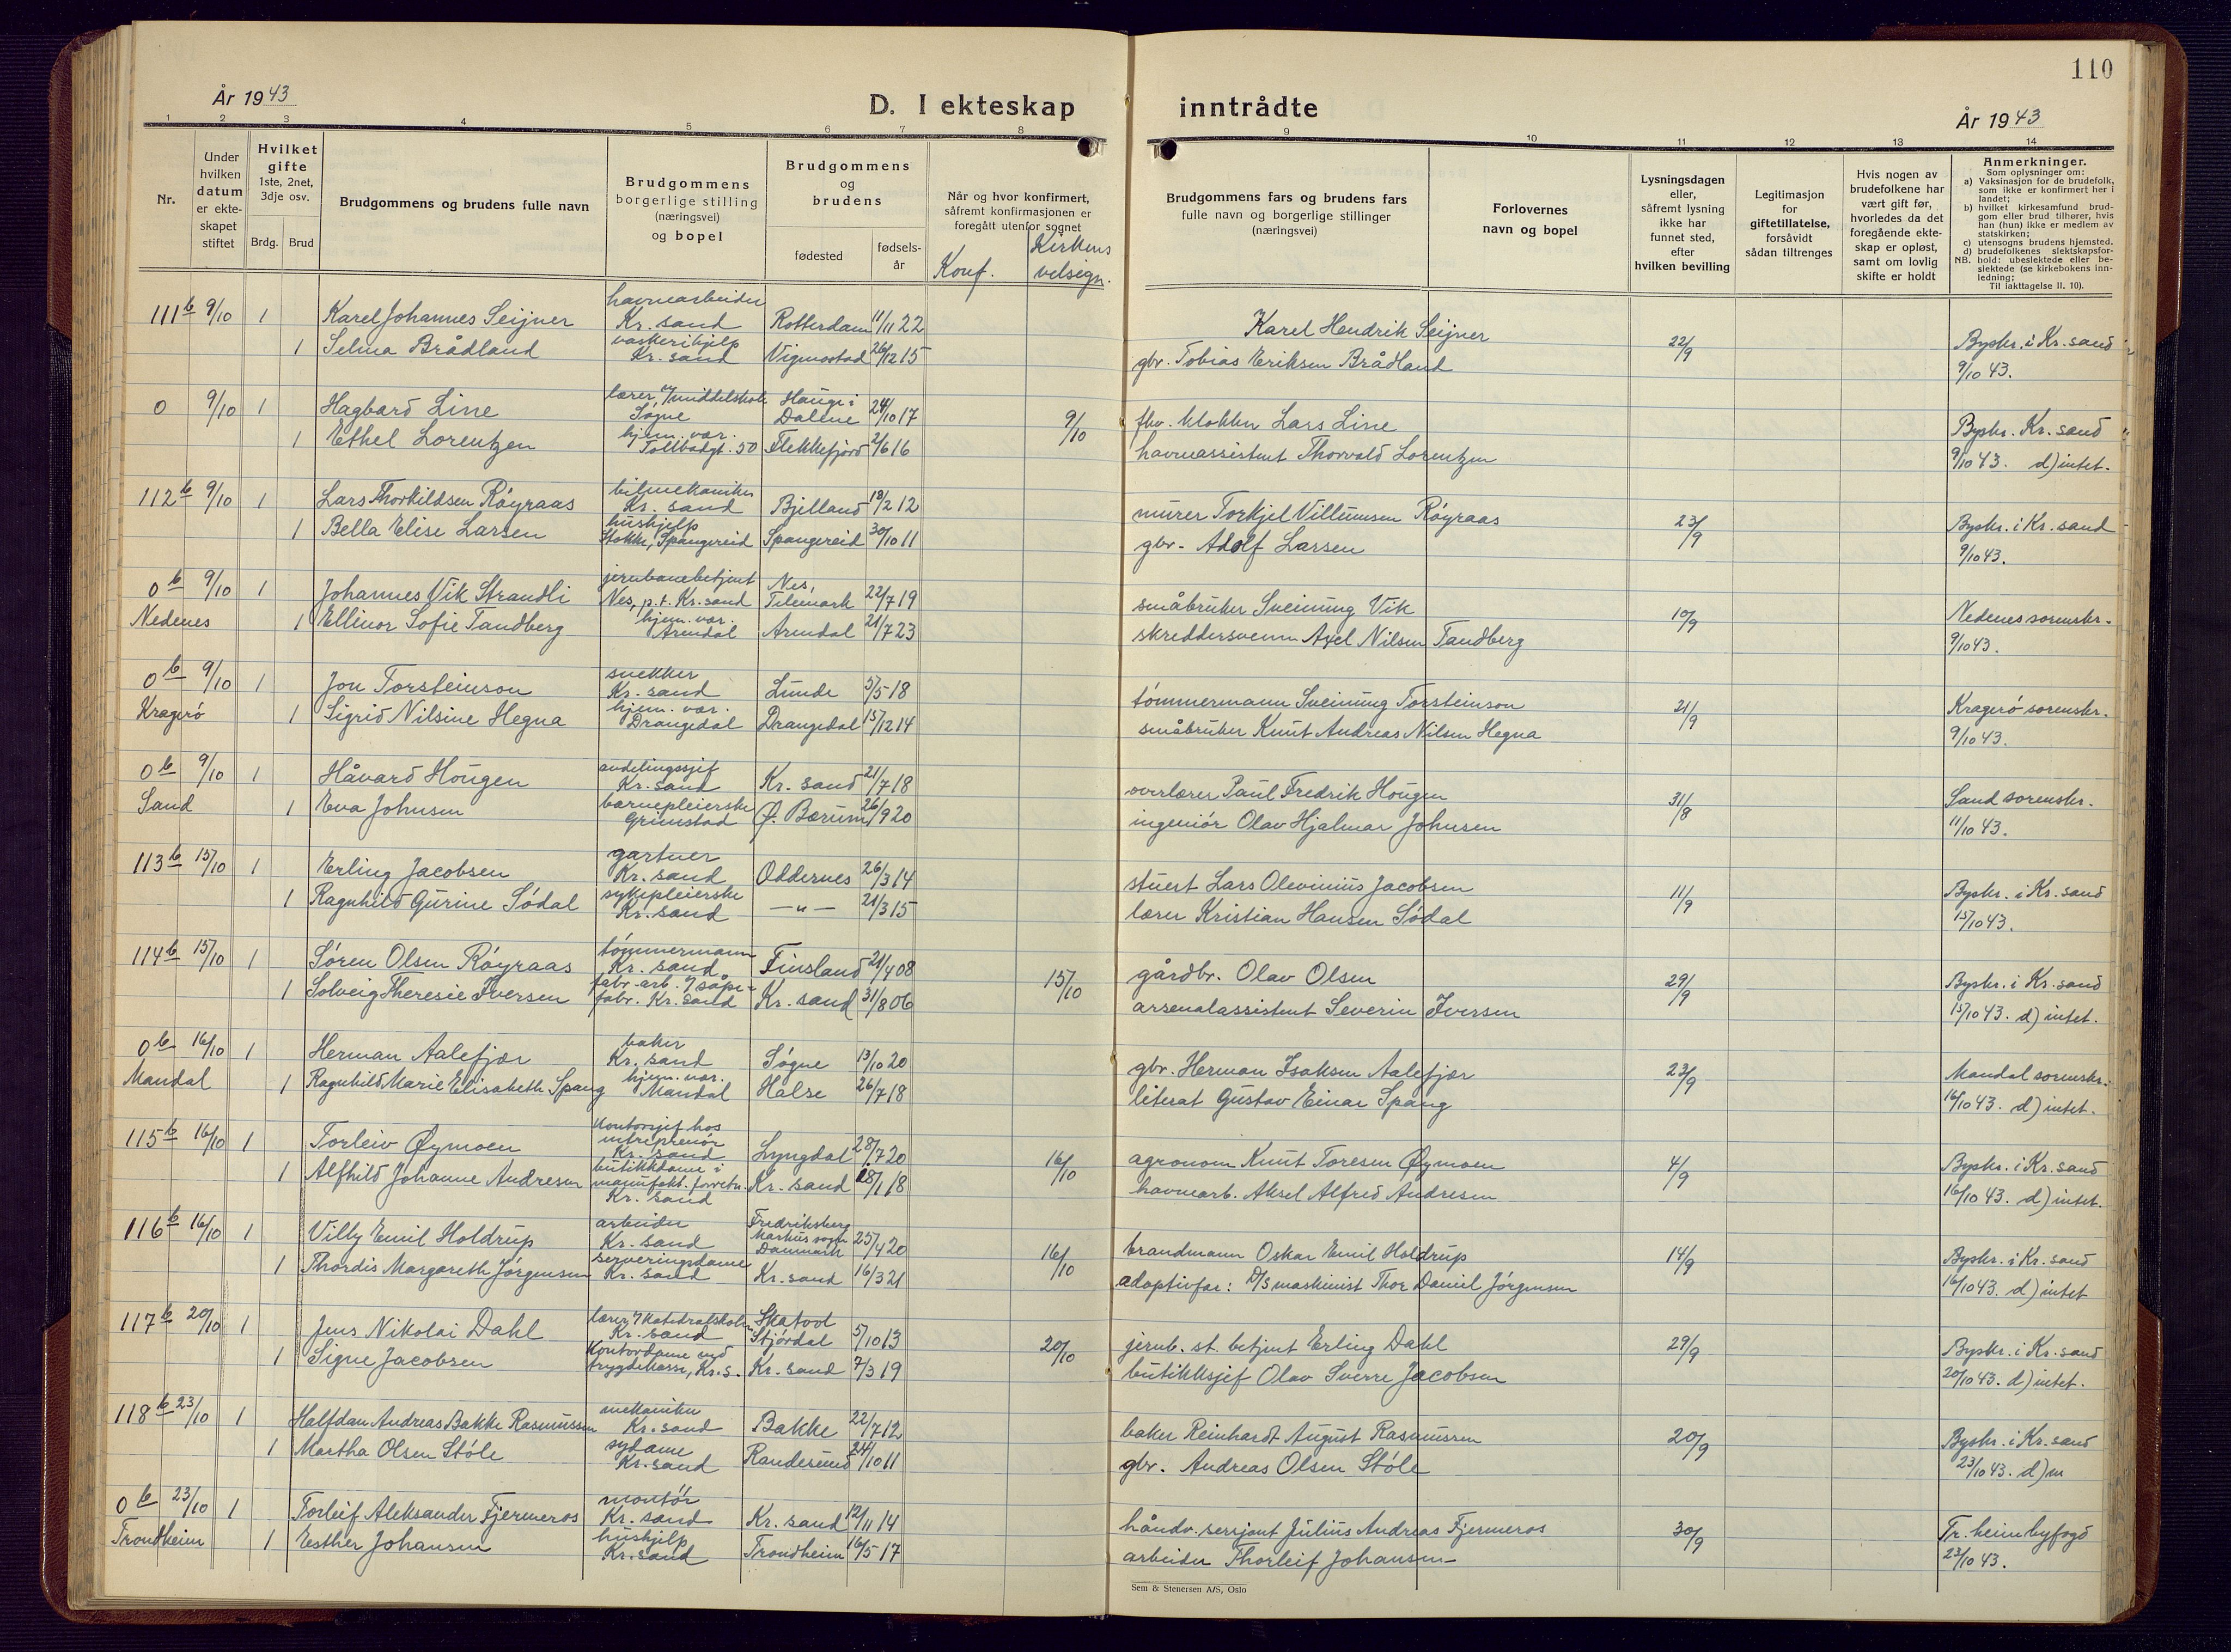 110
År 1943
D. I ekteskap inntrådte
År 1943
1 2 3 4 5 6 7 8 9 10 11 12 13 14
Nr.
Under hvilken datum er ekteskapet stiftet
Hvilket gifte 1ste, 2net, 3dje osv.
Brdg. Brud
Brudgommens og brudens fulle navn
Brudgommens borgerlige stilling (næringsvei) og bopel
Brudgommens og brudens
fødested
fødselsår
Når og hvor konfirmert, såfremt konfirmasjonen er foregått utenfor sognet
Konf.
Kirkens velsign.
Brudgommens fars og brudens fars fulle navn og borgerlige stillinger (næringsvei)
Forlovernes navn og bopel
Lysningsdagen eller, såfremt lysning ikke har funnet sted, efter hvilken bevilling
Legitimasjon for giftetillatelse, forsåvidt sådan tiltrenges
Hvis nogen av brudefolkene har vært gift før, hvorledes da det foregående ekteskap er opløst, samt om lovlig skifte er holdt
Anmerkninger.
Som oplysninger om:
a) Vaksinasjon for de brudefolk, som ikke er konfirmert her i landet;
b) hvilket kirkesamfund brudgom eller brud tilhører, hvis han (hun) ikke er medlem av statskirken;
c) utensogns brudens hjemsted,
d) brudefolkenes slektskapsforhold: ubeslektede eller beslektede (se kirkebokens innledning;
NB.
Til iakttagelse II, 10).
111 b 9/10 1 Karel Johannes Seijner havnearbeider Kr. sand Rotterdam 11/11 22 Karel Hendrik Seijner 22/9 Byskr. i Kr. sand
1 Selma Brådland vaskerihjelp Kr. sand Vigmostad 26/12 15 gbr. Tobias Eriksen Brådland 9/10 43.
0 9/10 1 Hagbard Line lærer v/middelskole Søgne Hauge i Dalene 24/10 17 9/10 fhv. klokker Lars Line Byskr. Kr. sand
1 Ethel Lorentzen hjem. vær. Tollbodgt. 50 Flekkefjord 2/6 16 havneassistent Thorvald Lorentzen 9/10 43. d) intet.
112 b 9/10 1 Lars Thorkildsen Røyraas bilmekaniker Kr. sand Bjelland 18/2 12 murer Torkjel Villumsen Røyraas 23/9 Byskr. i Kr. sand
1 Bella Elise Larsen hushjelp Stokke, Spangereid Spangereid 30/10 11 gbr. Adolf Larsen 9/10 43.
0 b 9/10 1 Johannes Vik Strandli jernbanebetjent Nes, p.t. Kr. sand Nes, Telemark 22/7 19 småbruker Sveinung Vik 10/9 Nedenes sorenskr.
Nedenes 1 Ellinor Sofie Tandberg hjem. vær. Arendal Arendal 21/7 23 skreddersvenn Axel Nilsen Tandberg 9/10 43.
0 b 9/10 1 Jon Torsteinson snekker Kr. sand Lunde 5/5 18 tømmermann Sveinung Torsteinson 21/9 Kragerø sorenskr.
Kragerø 1 Sigrid Nilsine Hegna hjem. vær. Drangedal Drangedal 15/12 14 småbruker Knut Andreas Nilsen Hegna 9/10 43.
0 b 9/10 1 Håvard Hougen avdelingssjef Kr. sand Kr. sand 21/7 18 overlærer Paul Fredrik Hougen 31/8 Sand sorenskr.
Sand 1 Eva Johnsen barnepleierske Grimstad Ø. Bærum 26/9 20 ingeniør Olav Hjalmar Johnsen 11/10 43.
113 b 15/10 1 Erling Jacobsen gartner Kr. sand Oddernes 26/3 14 stuert Lars Olevinius Jacobsen 11/9 Byskr. i Kr. sand
1 Ragnhild Gurine Sødal sykepleierske Kr. sand —"— 21/3 15 lærer Kristian Hansen Sødal 15/10 43.
114 b 15/10 1 Søren Olsen Røyraas tømmermann Kr. sand Finsland 21/4 08 15/10 gårdbr. Olav Olsen 29/9 Byskr. i Kr. sand
1 Solveig Theresie Iversen fabr.-arb. v/såpefabr. Kr. sand Kr. sand 31/8 06 arsenalassistent Severin Iversen 15/10 43. d) intet.
0 b 16/10 1 Herman Aalefjær baker Kr. sand Søgne 13/10 20 gbr. Herman Isaksen Aalefjær 23/9 Mandal sorenskr.
Mandal 1 Ragnhild Marie Elisabeth Spang hjem. vær. Mandal Halse 26/7 18 literat Gustav Einar Spang 16/10 43. d) intet.
115 b 16/10 1 Torleiv Øymoen kontorsjef hos entreprenør Kr. sand Lyngdal 28/7 20 16/10 agronom Knut Toresen Øymoen 4/9 Byskr. i Kr. sand
1 Alfhild Johanne Andresen butikkdame i manufakt. forretn. Kr. sand Kr. sand 18 havnearb. Aksel Alfred Andresen 16/10 43. d) intet.
116 b 16/10 1 Villy Emil Holdrup arbeider Kr. sand Fredriksberg Markus sogn Danmark 25/4 20 16/10 brandmann Oskar Emil Holdrup 14/9 Byskr. i Kr. sand
1 Thordis Margareth Jørgensen serveringsdame Kr. sand Kr. sand 16/3 21 adoptivfar: D/S maskinist Thor Daniel Jørgensen 16/10 43. d) intet
117 b 20/10 1 Jens Nikolai Dahl lærer v/Katedralskolen Kr. sand Skatvol Stjørdal 5/10 13 20/10 jernb. st. betjent Erling Dahl 29/9 Byskr. i Kr. sand
1 Signe Jacobsen kontordame ved trygdekasse, Kr. S. Kr. sand 7/3 19 butikksjef Olav Sverre Jacobsen 20/10 43. d) intet.
118 b 23/10 1 Halfdan Andreas Bakke Rasmussen mekaniker Kr. sand Bakke 22/7 12 baker Reinhardt August Rasmussen 20/9 Byskr. i Kr. sand
1 Martha Olsen Støle sydame Kr. sand Randesund 24/10 11 gbr. Andreas Olsen Støle 23/10 43. d)
0 b 23/10 1 Torleif Aleksander Fjermeros montør Kr. sand Kr. sand 12/11 14 håndv. sersjant Julius Andreas Fjermeros 30/9 Tr. heim byfogd
Trondheim 1 Esther Johansen hushjelp Kr. sand Trondheim 16/5 17 arbeider Thorleif Johansen 23/10 43.
Sem & Stenersen A/S, Oslo